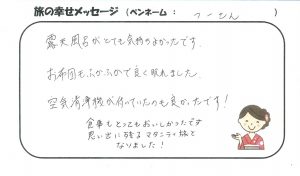 旅の幸せメッセージ (ペンネーム : つーさん )
露天風呂がとても気持ちよかったです。
お布団もふかふかで良く眠れました
空気清浄機が付いていたのも良かったです!
食事もとってもおいしかったです
思い出に残るマタニティ旅と
なりました!